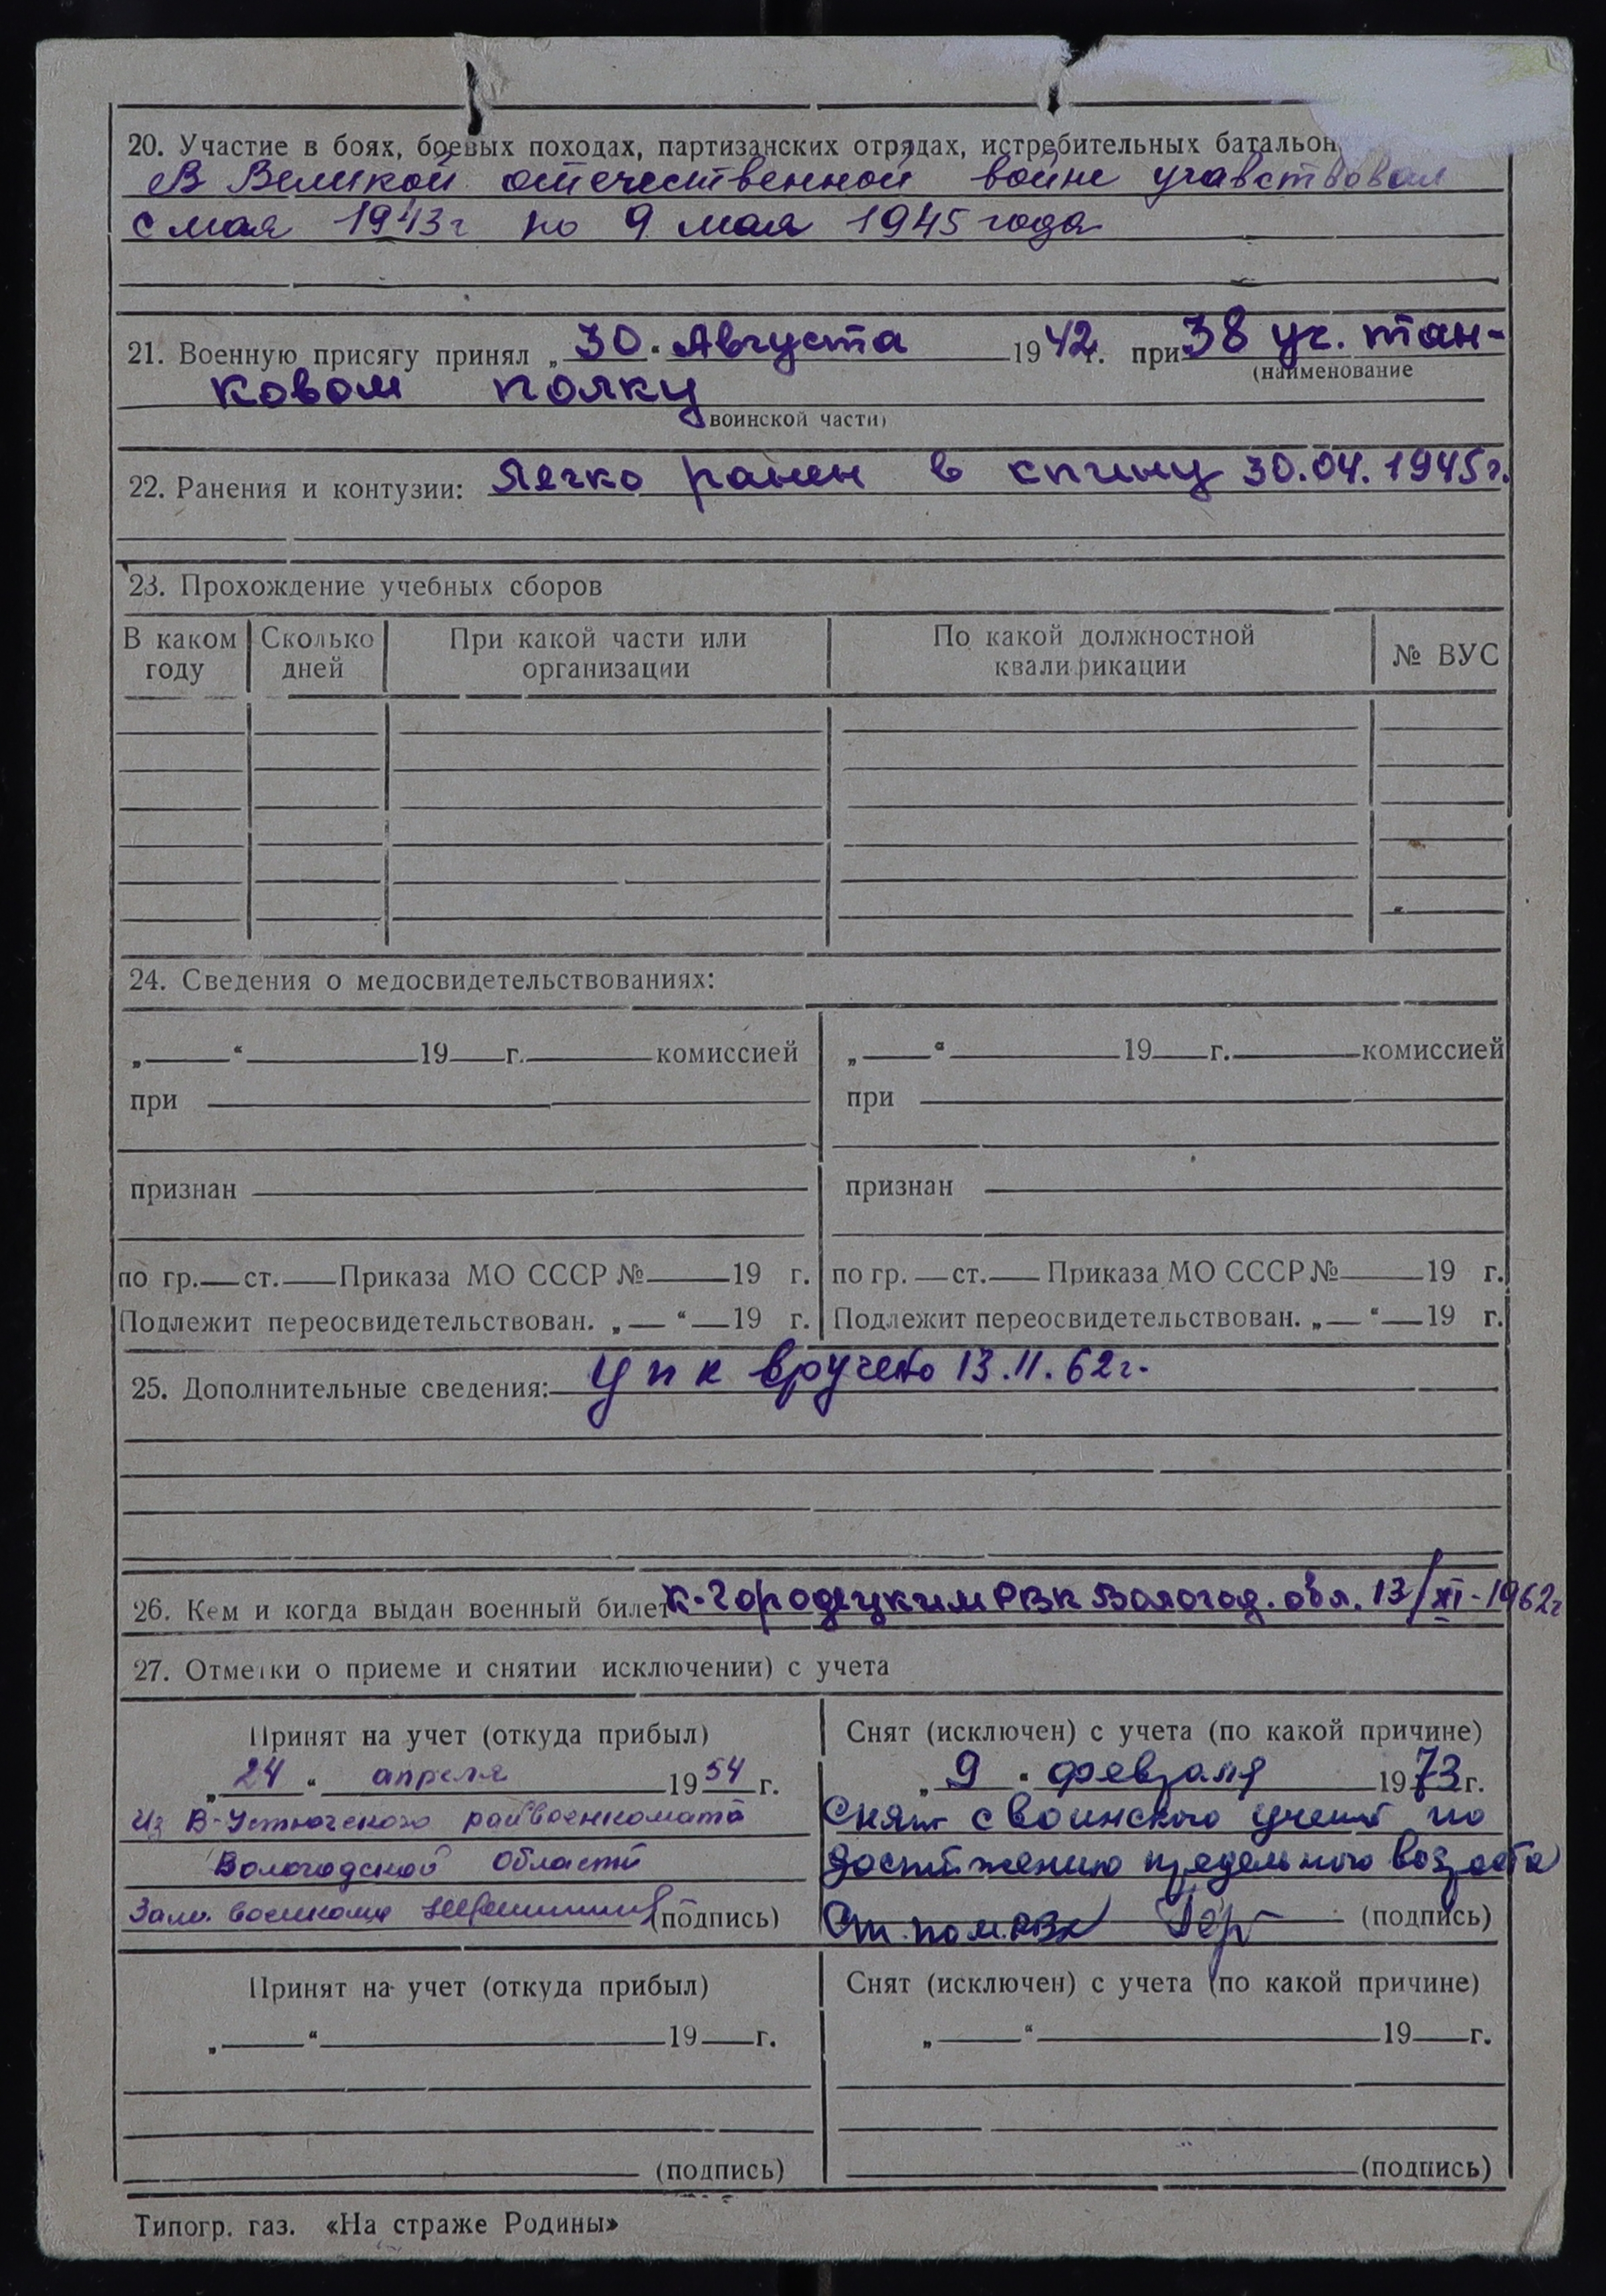 20. Участие в боях, боевых походах, партизанских отрядах, истребительных батальон
В Великой отечественной войне учавствовал
с мая 1943г по 9 мая 1945 года
21. Военную присягу принял „30“ Августа 1942 г. при 38 уч. тан-
(наименование
ковом полку
воинской части)
22. Ранения и контузии: Легко ранен в спину 30.04.1945г.
23. Прохождение учебных сборов
В каком году Сколько дней При какой части или организации По какой должностной квалификации № ВУС
24. Сведения о медосвидетельствованиях:
„ “ 19 г. комиссией „ “ 19 г. комиссией
при при
признан признан
по гр. ст. Приказа МО СССР № 19 г. по гр. ст. Приказа МО СССР № 19 г.
Подлежит переосвидетельствован. „ “ 19 г. Подлежит переосвидетельствован. „ “ 19 г.
25. Дополнительные сведения: УПК вручено 13.11.62г.
26. Кем и когда выдан военный билет К-Городецким РВК Вологод. обл. 13/XI-1962г
27. Отметки о приеме и снятии исключении) с учета
Принят на учет (откуда прибыл) Снят (исключен) с учета (по какой причине)
„24“ апреля 1954 г. „9“ февраля 1973 г.
Из В-Устюгского райвоенкомата Снят с воинского учета по
Вологодской области достижению предельного возраста
Зам. военкома (подпись) Ст. пом. РВК (подпись)
Принят на учет (откуда прибыл) Снят (исключен) с учета (по какой причине)
„ “ 19 г. „ “ 19 г.
(подпись) (подпись)
Типогр. газ. «На страже Родины»